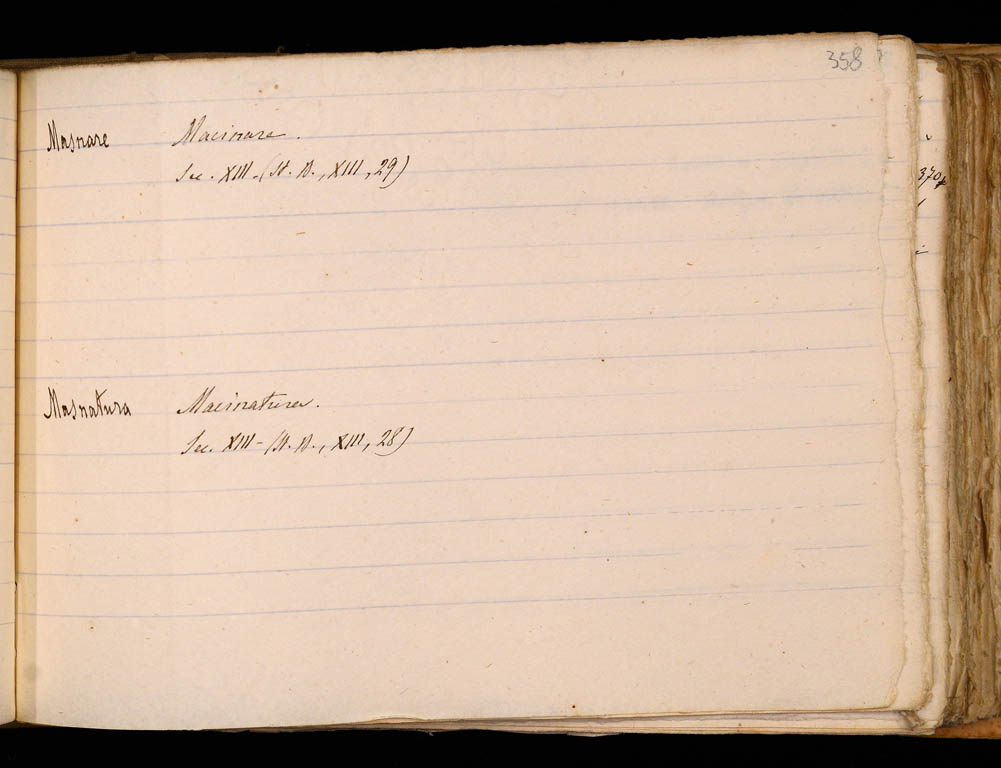 358
Masnare Macinare.
Sec. XIII - (St. B., XIII, 29)
370,
Masnatura Macinatura.
Sec. XIII - (St. B., XIII, 28)